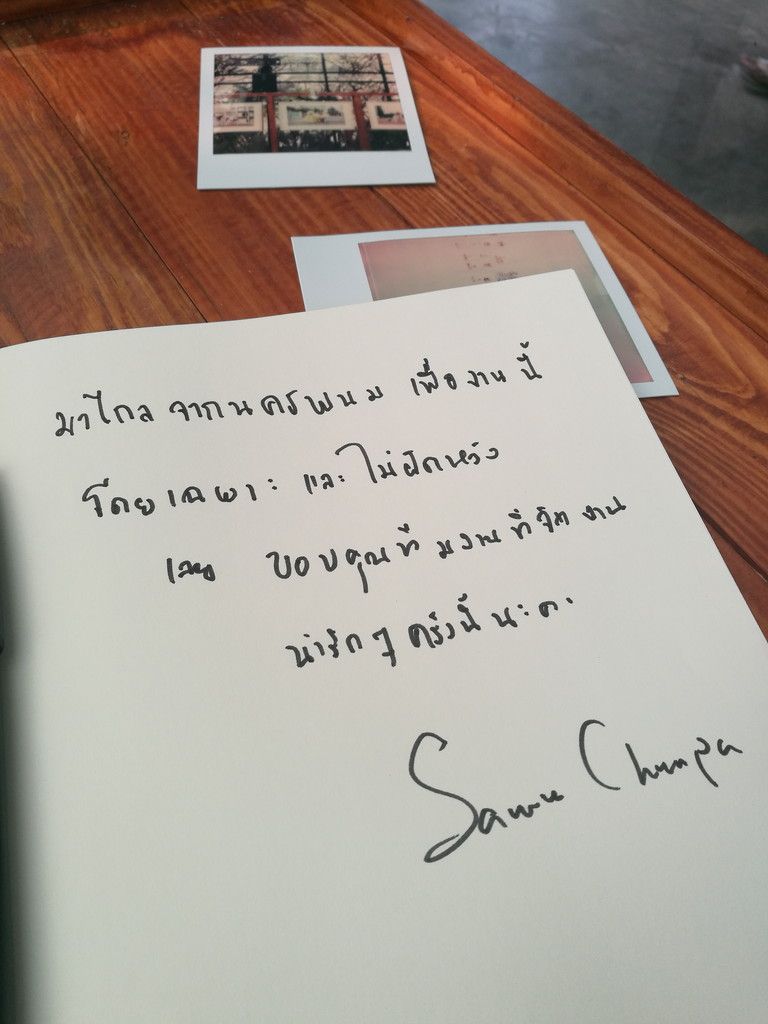 มาไกลจากนครพนม เพื่องานนี้
โดยเฉพาะ และไม่ผิดหวัง
เลย ขอบคุณทีมงานที่จัดงาน
น่ารักๆ ครั้งนี้นะคะ